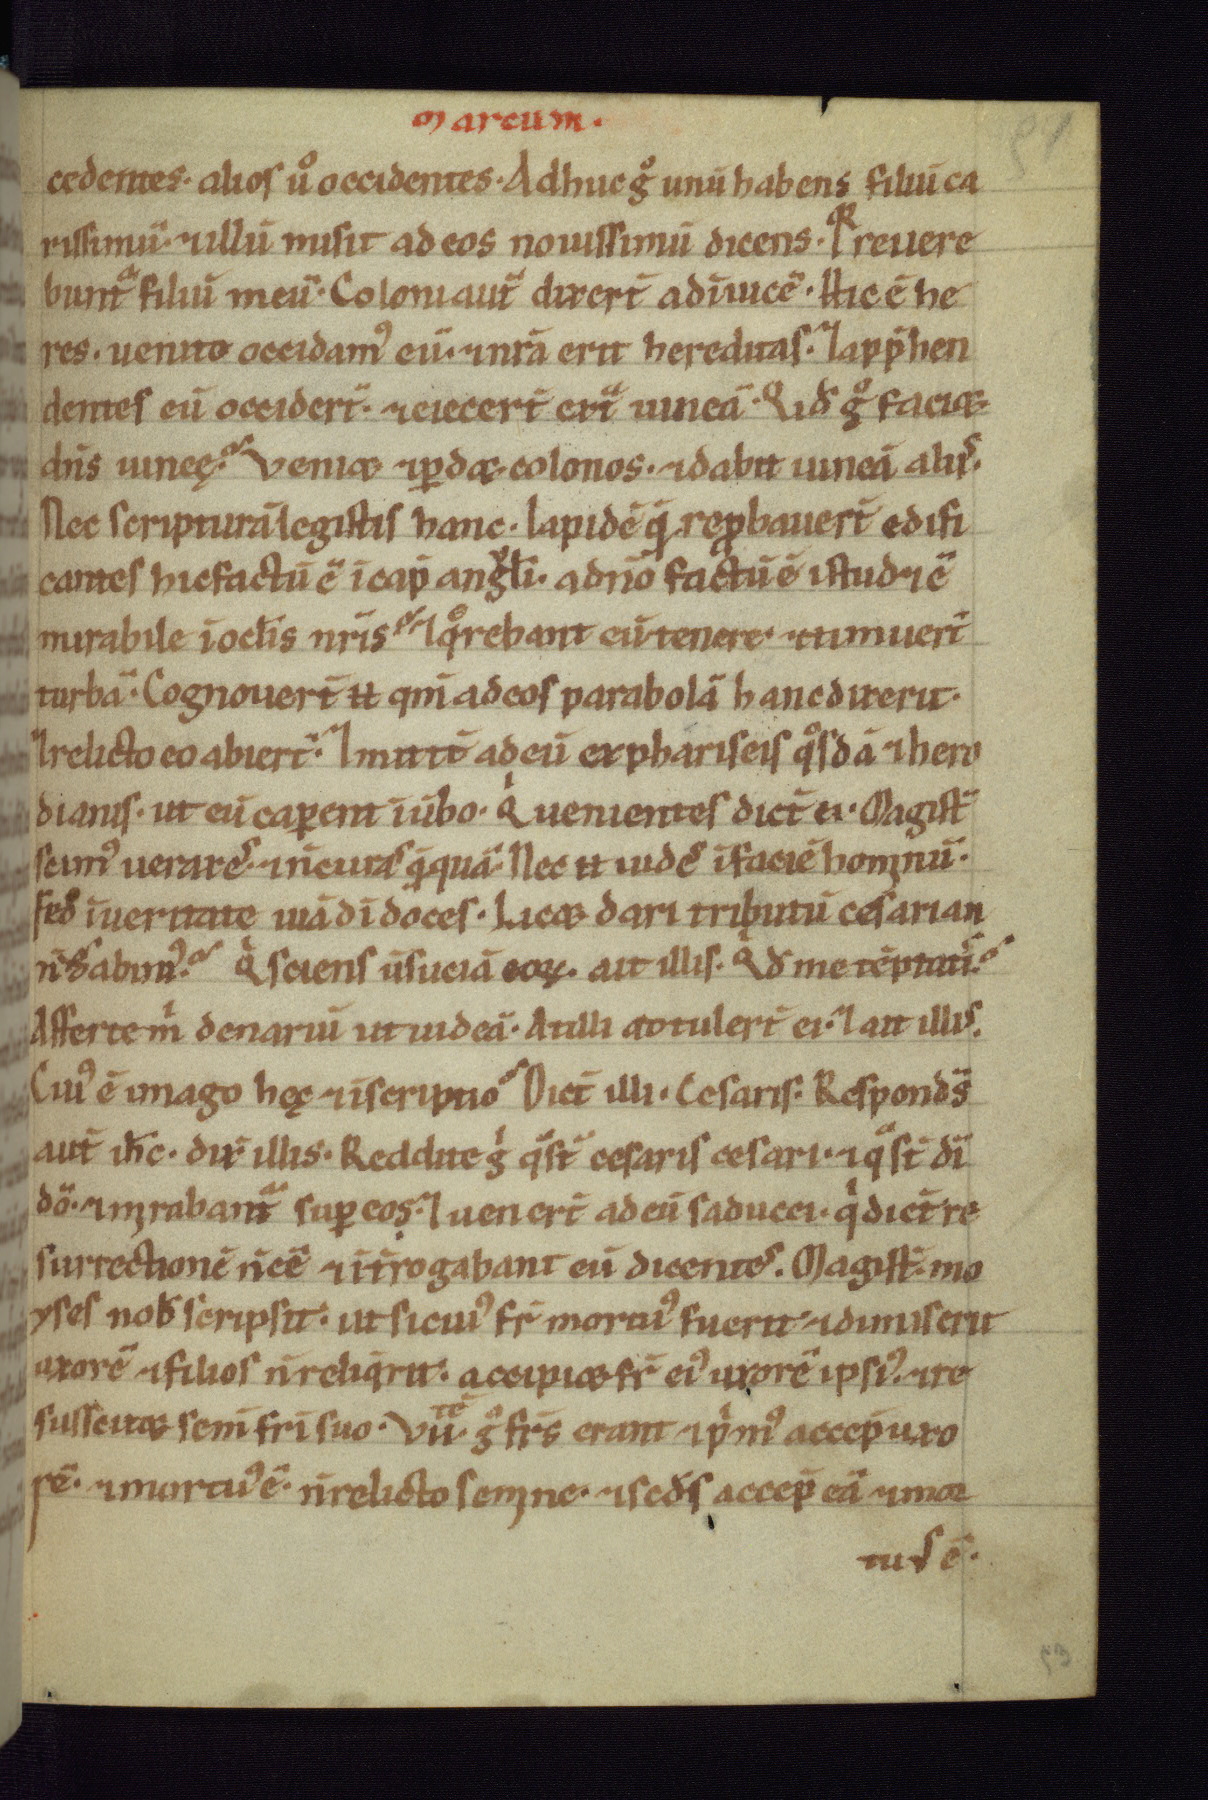 Marcum.
cedentes. alios ů occidentes. Adhuc gͦ unū habens filiū ca
rissimū. ⁊ illū misit ad eos nouissimū dicens. Qͥa reuere
bunt̄ filiū meū. Coloni aut̄ dixer̄t adīuicē. Hic ē he
res. uenite occidam⁹ eū. ⁊ nr̄a erit hereditas. ⁊ app̄hen
dentes eū occider̄t. ⁊ eiecer̄t ext̄ uineā. Qid gͦ faciet
dn̄s uineę. Veniet ⁊ ꝑdet colonos. ⁊ dabit uineā aliis.
Nec scripturā legistis hanc. lapidē quē reꝓbauer̄t edifi
cantes hic factū ē ī cap̄ angl̄i. a dn̄o factū ē istud ⁊ ē
mirabile ī oclis̄ nr̄is. ⁊ qͦrebant eū tenere. ⁊ timuer̄t
turbā. Cognouer̄t tt qm̄ ad eos parabolā hanc dixerit.
⁊ relicto eo abier̄t. ⁊ mittt̄ ad eū ex phariseis qͦsdā ⁊ hero
dianis. ut eū caꝑent ī ūbo. Qͥ uenientes dict̄ ei. Magist̄
scim⁹ uerax es. ⁊ n̄ curas qͥquā. Nec tt uides ī faciē hominū.
sed ī ueritate uiā dī doces. Licet dari tributū cesari an
n̄ dabim⁹. Qͥ sciens ūsuciā eoꝝ. ait illis. Qͥd me tēptatis.
Afferte mͥ denariū ut uideā. At illi attuler̄t ei. ⁊ ait illis.
Cui⁹ ē imago hęc ⁊ īscriptio. Dict̄ illi. Cesaris. Respondēs
aut̄ ih̄c. dix̄ illis. Reddite gͥ qͣ st̄ cesaris cesari. ⁊ qͣ st̄ dī
dō. ⁊ mirabant̄ suꝑ eo. ⁊ uener̄t ad eū saducei. qͥ dict̄ re
surrectionē n̄ eē ⁊ īt̄rogabant eū dicentes. Magist̄. mo
yses nob̄ scripsit. ut si cui⁹ fr̄ mortu⁹ fuerit ⁊ dimiserit
uxorē ⁊ filios n̄ reliqͥrit. accipiet fr̄ ei⁹ uxorē ipsi⁹. ⁊ re
suscitet sem̄ fr̄i suo. Vii tē gͦ fr̄s erant ⁊ pͥm⁹ accep̄ uxo
rē. ⁊ mortu⁹ ē. n̄ relicto semine. ⁊ sed̄s accep̄ eā ⁊ mor
tuus ē.